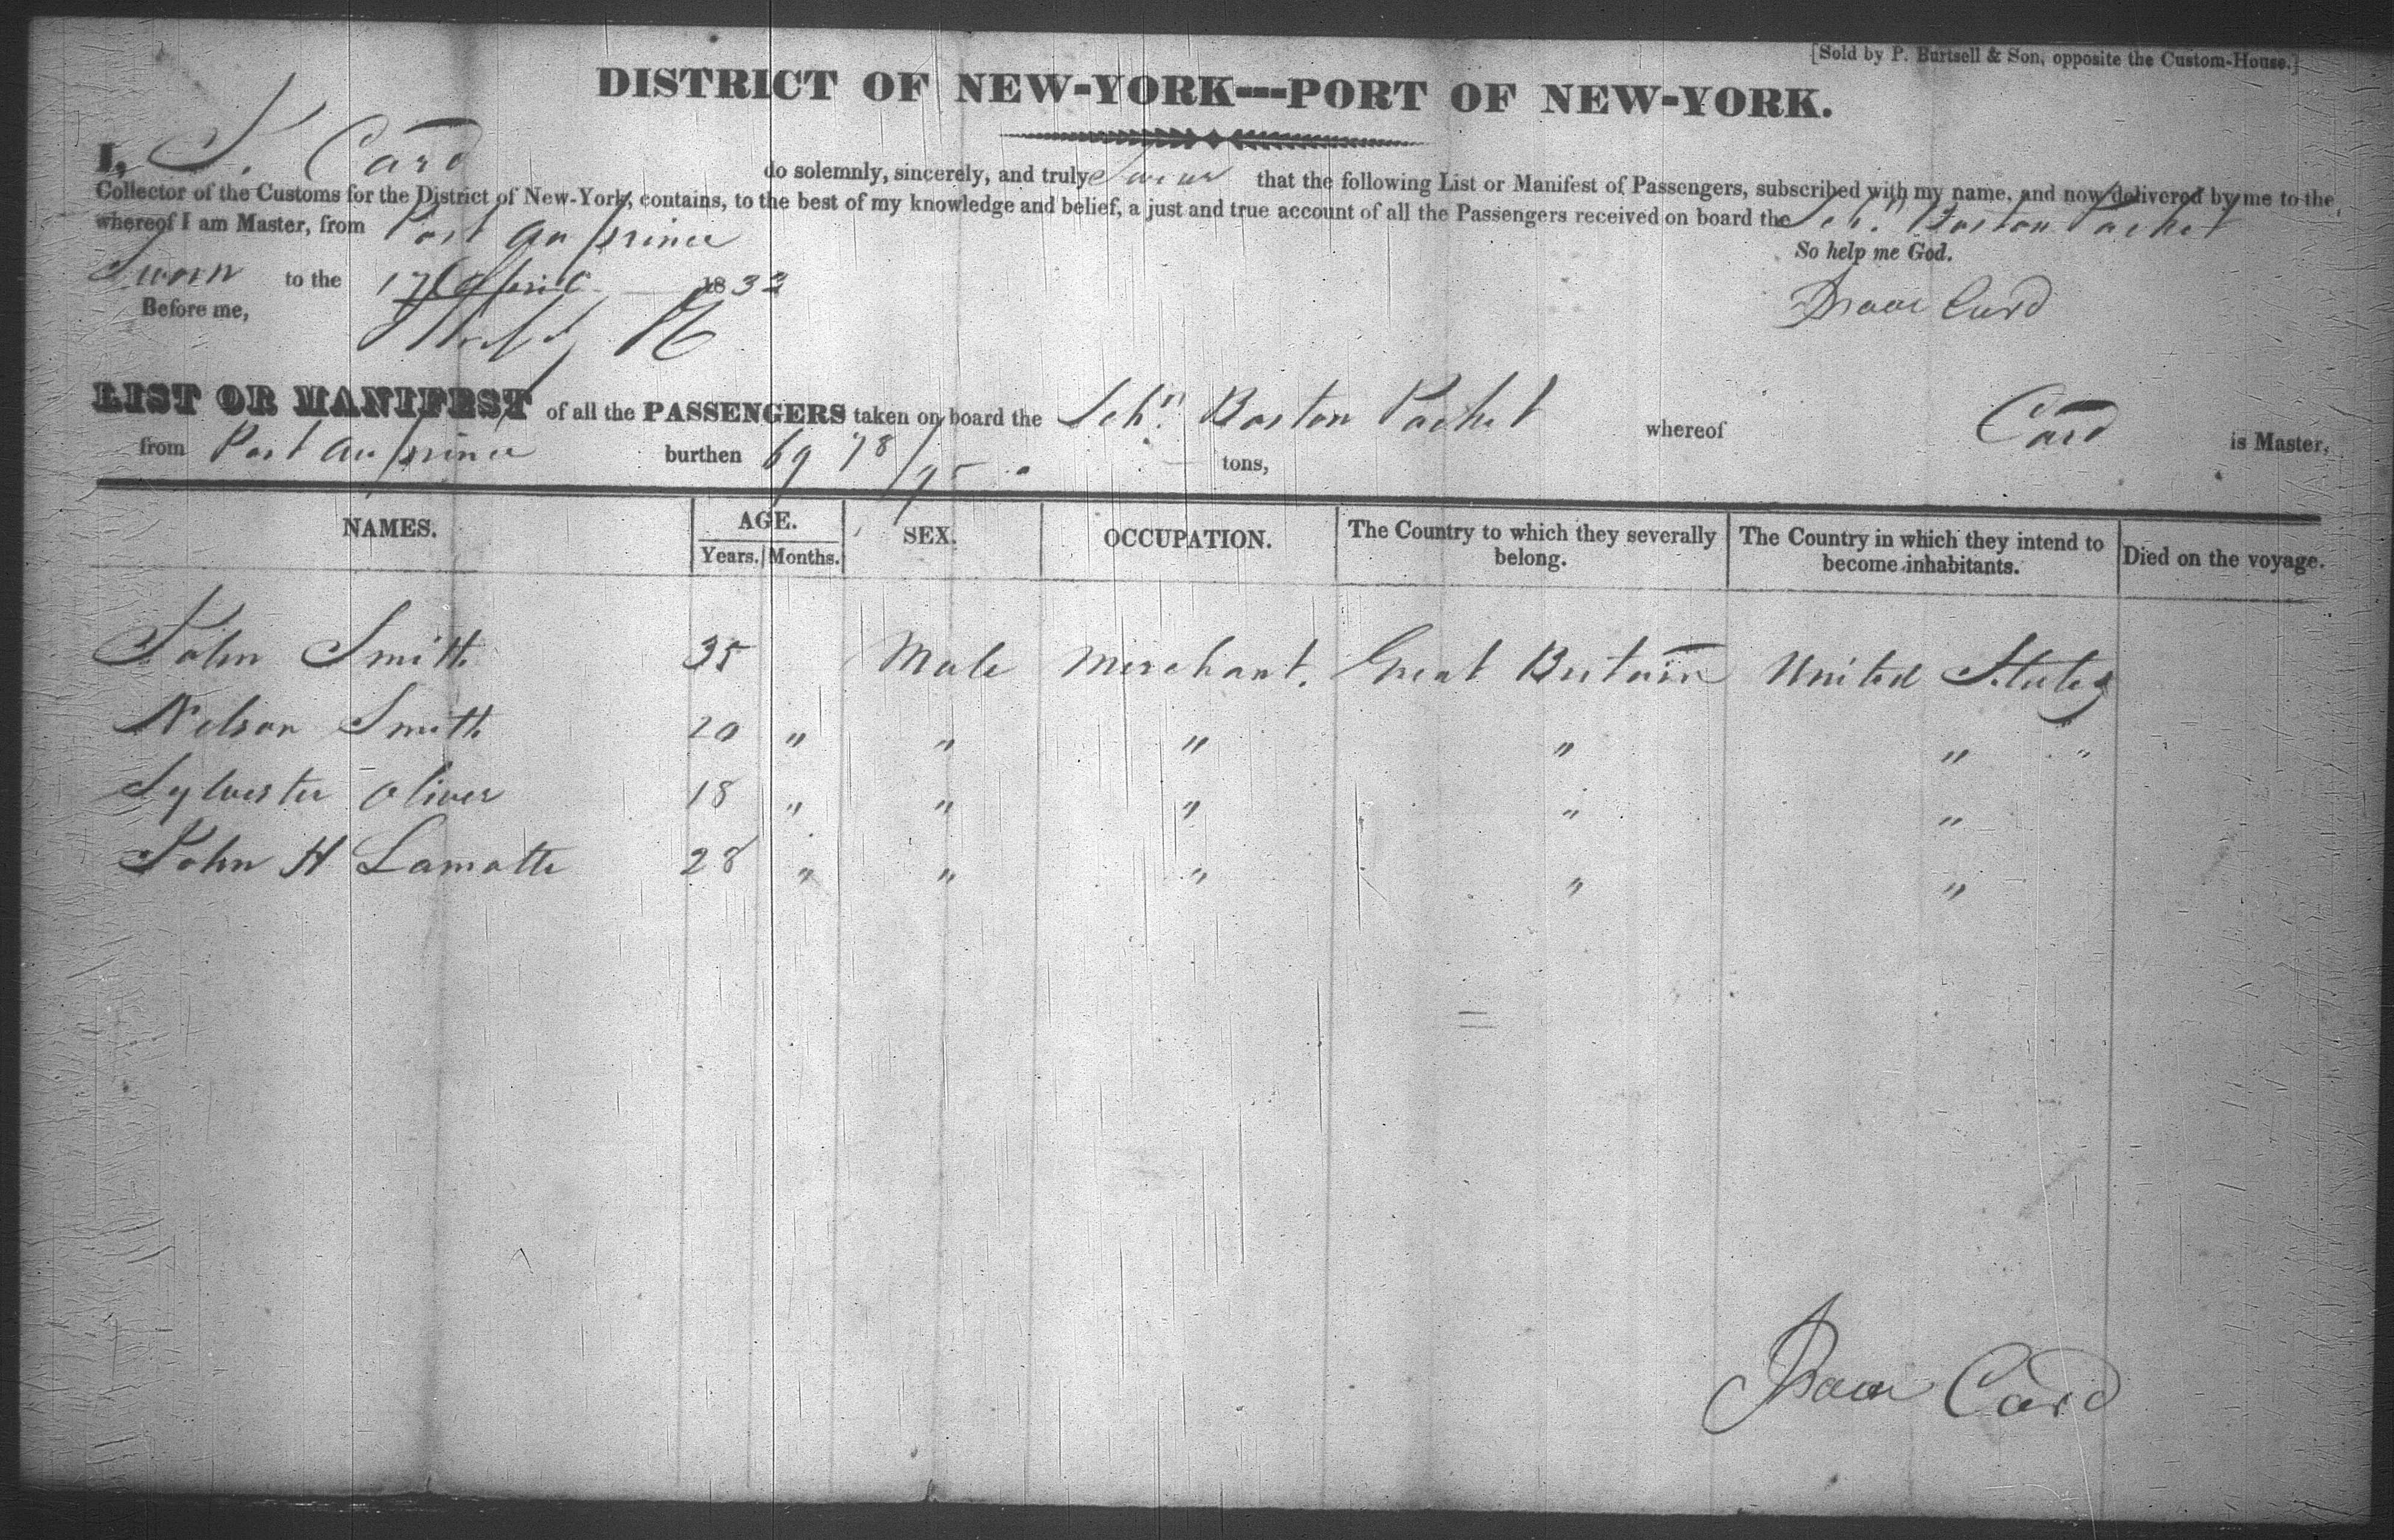 [Sold by P. Burtsell & Son, opposite the Custom-House.]
DISTRICT OF NEW-YORK---PORT OF NEW-YORK.
I, I. Card do solemnly, sincerely, and truly Swear that the following List or Manifest of Passengers, subscribed with my name, and now delivered by me to the
Collector of the Customs for the District of New-York, contains, to the best of my knowledge and belief, a just and true account of all the Passengers received on board the Schr. Boston Packet
whereof I am Master, from Port au prince
So help me God.
Sworn to the 17 April 1833
Isaac Card
Before me,
LIST OR MANIFEST of all the PASSENGERS taken on board the Schr. Boston Packet whereof Card is Master,
from Port au prince burthen 69 78/95 tons,
NAMES. AGE. SEX. OCCUPATION. The Country to which they severally belong. The Country in which they intend to become inhabitants. Died on the voyage.
Years. Months.
John Smith 35 Male Merchant. Great Britain United States
Nelson Smith 20 " " " " " "
Sylvester Oliver 18 " " " " "
John H Lamotte 28 " " " " "
Isaac Card